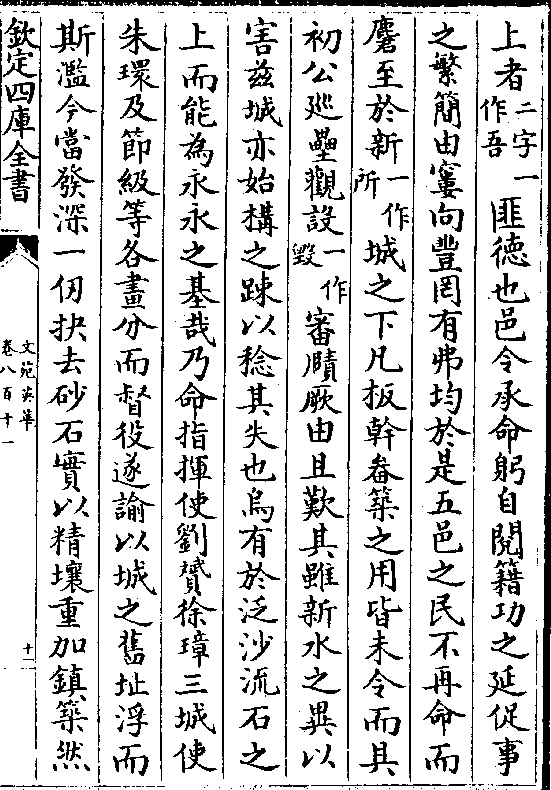 上者二字一作吾匪徳也邑令承命躬自閲籍功之延促事
之繁簡由寠向豐罔有弗均於是五邑之民不再命而
麏至於新一作所城之下凡板幹畚築之用皆未令而具
初公廵壘觀設一作毀審賾厥由且歎其雖新水之異以
害兹城亦始構之踈以稔其失也烏有於泛沙流石之
上而能為永永之基哉乃命指揮使劉贇徐璋三城使
朱環及節級等各畫分而督役遂諭以城之舊址浮而
斯濫今當發深一仞抉去砂石實以精壤重加鎮築然
欽定四庫全書
文苑英華
卷八百十一
十一